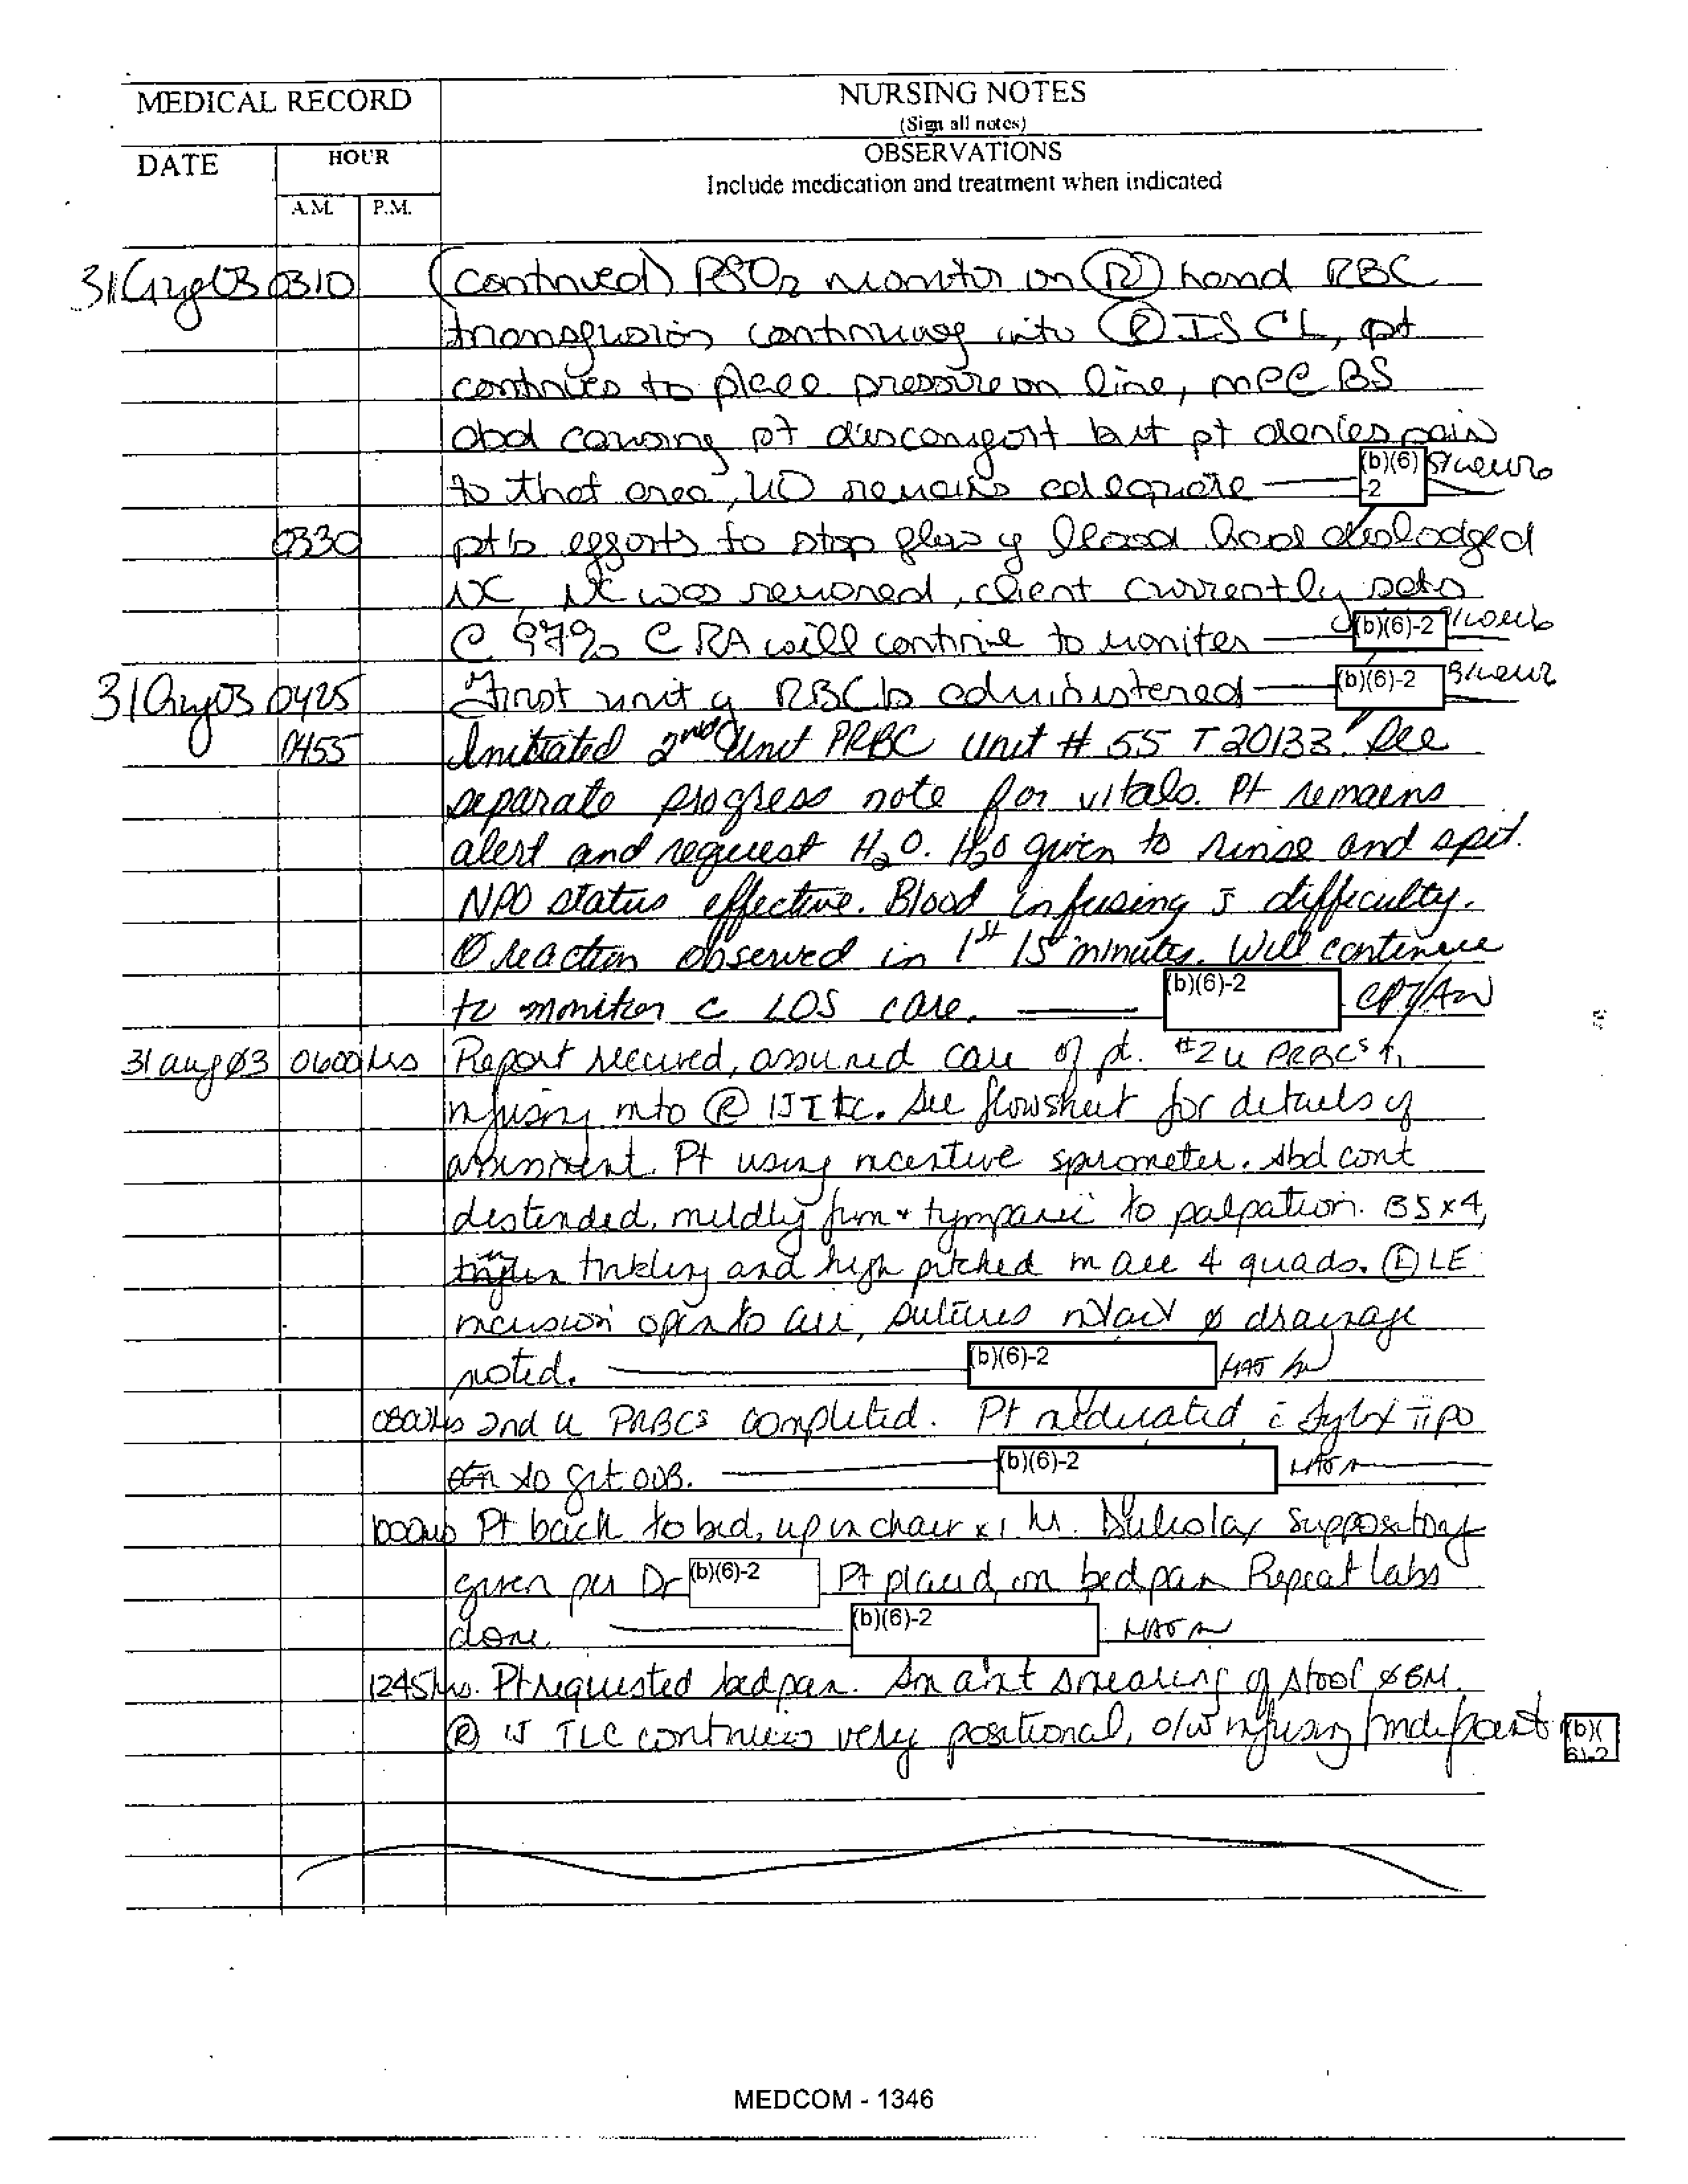 MEDICAL RECORD
NURSING NOTES
(Sign all notes)
DATE
HOUR
OBSERVATIONS
Include medication and treatment when indicated
A.M. P.M.
31Aug03 0310 (continued) PSO2 monitor on (R) hand RBC
transfusion continuing into (R) IS CL, pt
continues to place pressure on line, BS
abd causing pt discomfort but pt denies pain
to that area, UO remains adequate (b)(6)-2
0330 pt's efforts to stop flow of blood had dislodged
NC, NC was removed, client currently sats
c 97% c RA will continue to moniter (b)(6)-2
31Aug03 0425 First unit of RBC's administered (b)(6)-2
0455 Initiated 2nd Unit PRBC unit # 55 T 20133. See
separate progress note for vitals. Pt remains
alert and request H2O. H2O given to rinse and spit.
NPO status effective. Blood infusing s difficulty.
Ø reaction observed in 1st 15 minutes. Will continue
to monitor c LOS care. (b)(6)-2 CPT/AN
31 aug 03 0600 hrs Report received, assumed care of pt. #2 u PRBCs
infusing into (R) IJ TLC. See flowsheet for details of
assessment. Pt using incentive spirometer. Abd cont
distended, mildly firm + tympanic to palpation. BS x4,
tinkling and high pitched in all 4 quads. (L) LE
incision open to air, sutures intact ø drainage
noted. (b)(6)-2
0800hrs 2nd u PRBCs completed. Pt medicated c Tylox ii po
to get OOB. (b)(6)-2
1000hrs Pt back to bed, up in chair x 1 hr. Dulcolax suppository
given per Dr (b)(6)-2 Pt placed on bedpan Repeat labs
done. (b)(6)-2
1245hrs. Pt requested bedpan. Sm amt smearing of stool ø BM.
(R) IJ TLC continues very positional, o/w infusing (b)(6)-2
MEDCOM - 1346